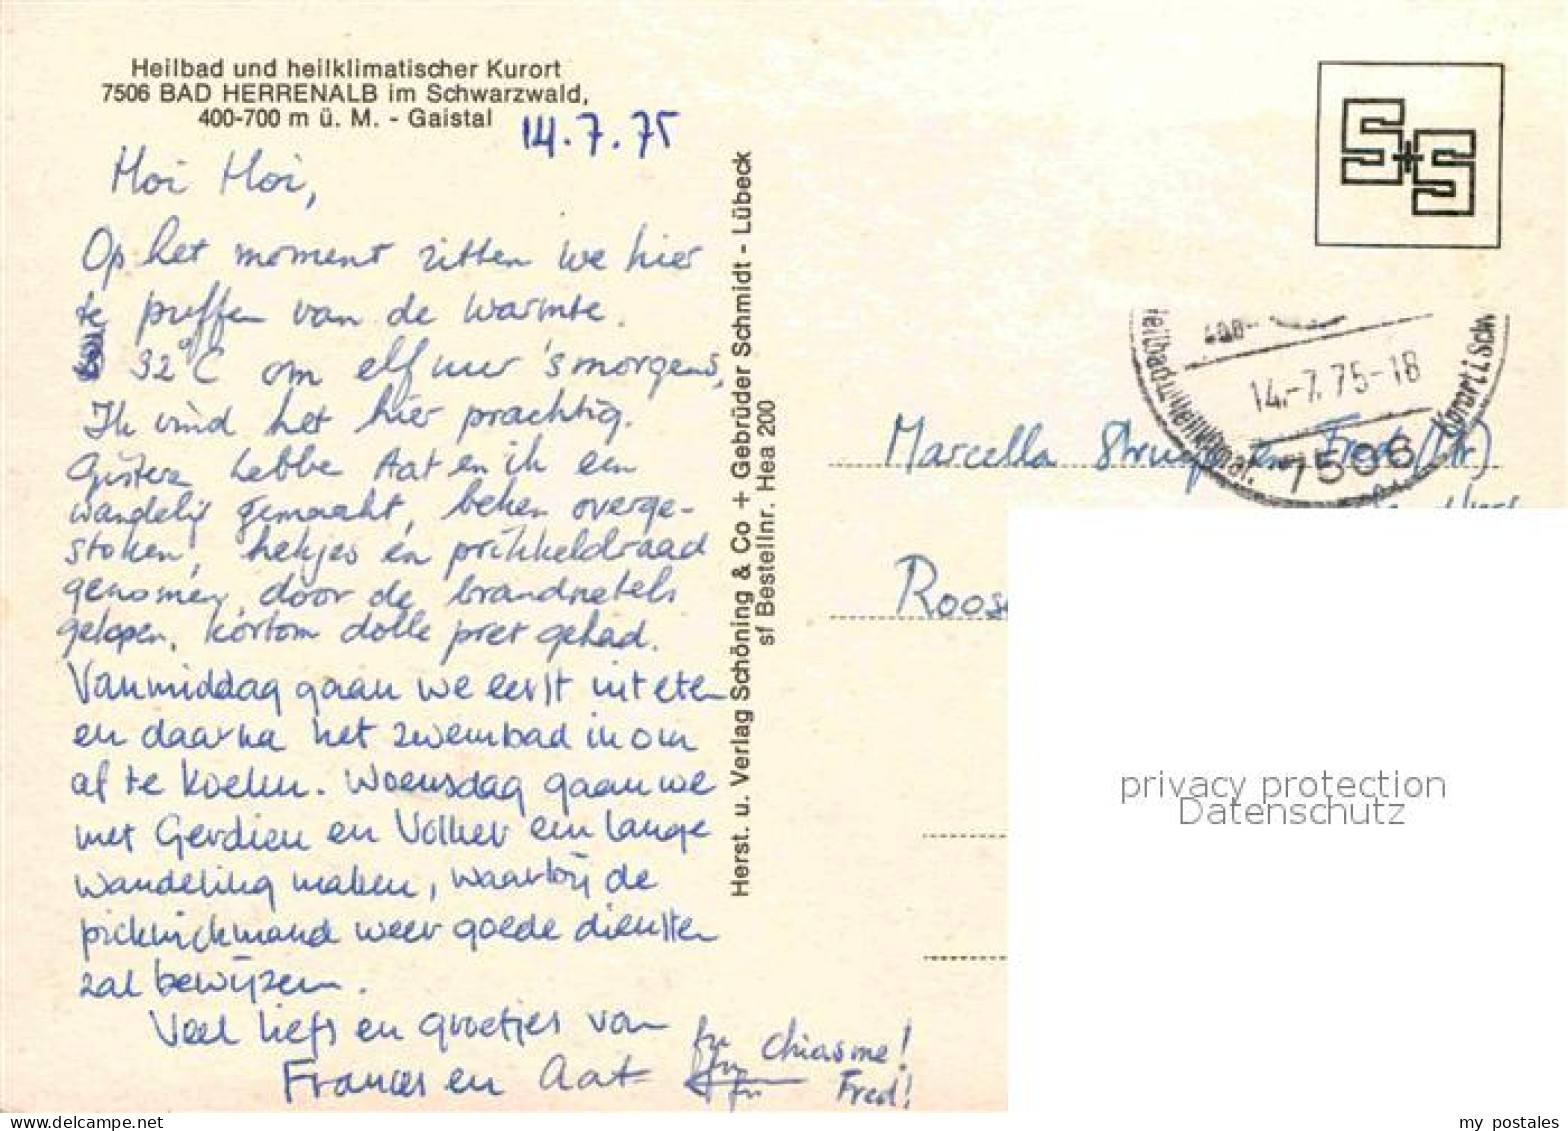 Heilbad und heilklimatischer Kurort
7506 BAD HERRENALB im Schwarzwald,
400-700 m ü. M. - Gaistal
14.7.75
Hoi Hoi,
Op het moment zitten we hier
te puffen van de warmte.
32°C om elf uur 's morgens,
Ik vind het hier prachtig.
Gisteren hebbe Aat en ik een
wandeling gemaakt, beken overge-
stoken, hekjes en prikkeldraad
genomen, door de brandnetels
gelopen, kortom dolle pret gehad.
Vanmiddag gaan we eerst uit eten
en daarna het zwembad in om
af te koelen. Woensdag gaan we
met Gerdien en Volker een lange
wandeling maken, waarbij de
picknickmand weer goede diensten
zal bewijzen.
Veel liefs en groetjes van
Frances en Aat
Chiasme!
Fred!
Herst. u. Verlag Schöning & Co + Gebrüder Schmidt - Lübeck
sf Bestellnr. Hea 200
S+S
14.-7.75-18
7506
Kurort i. Schw
Marcella
Fred
Roos
privacy protection
Datenschutz
my postales